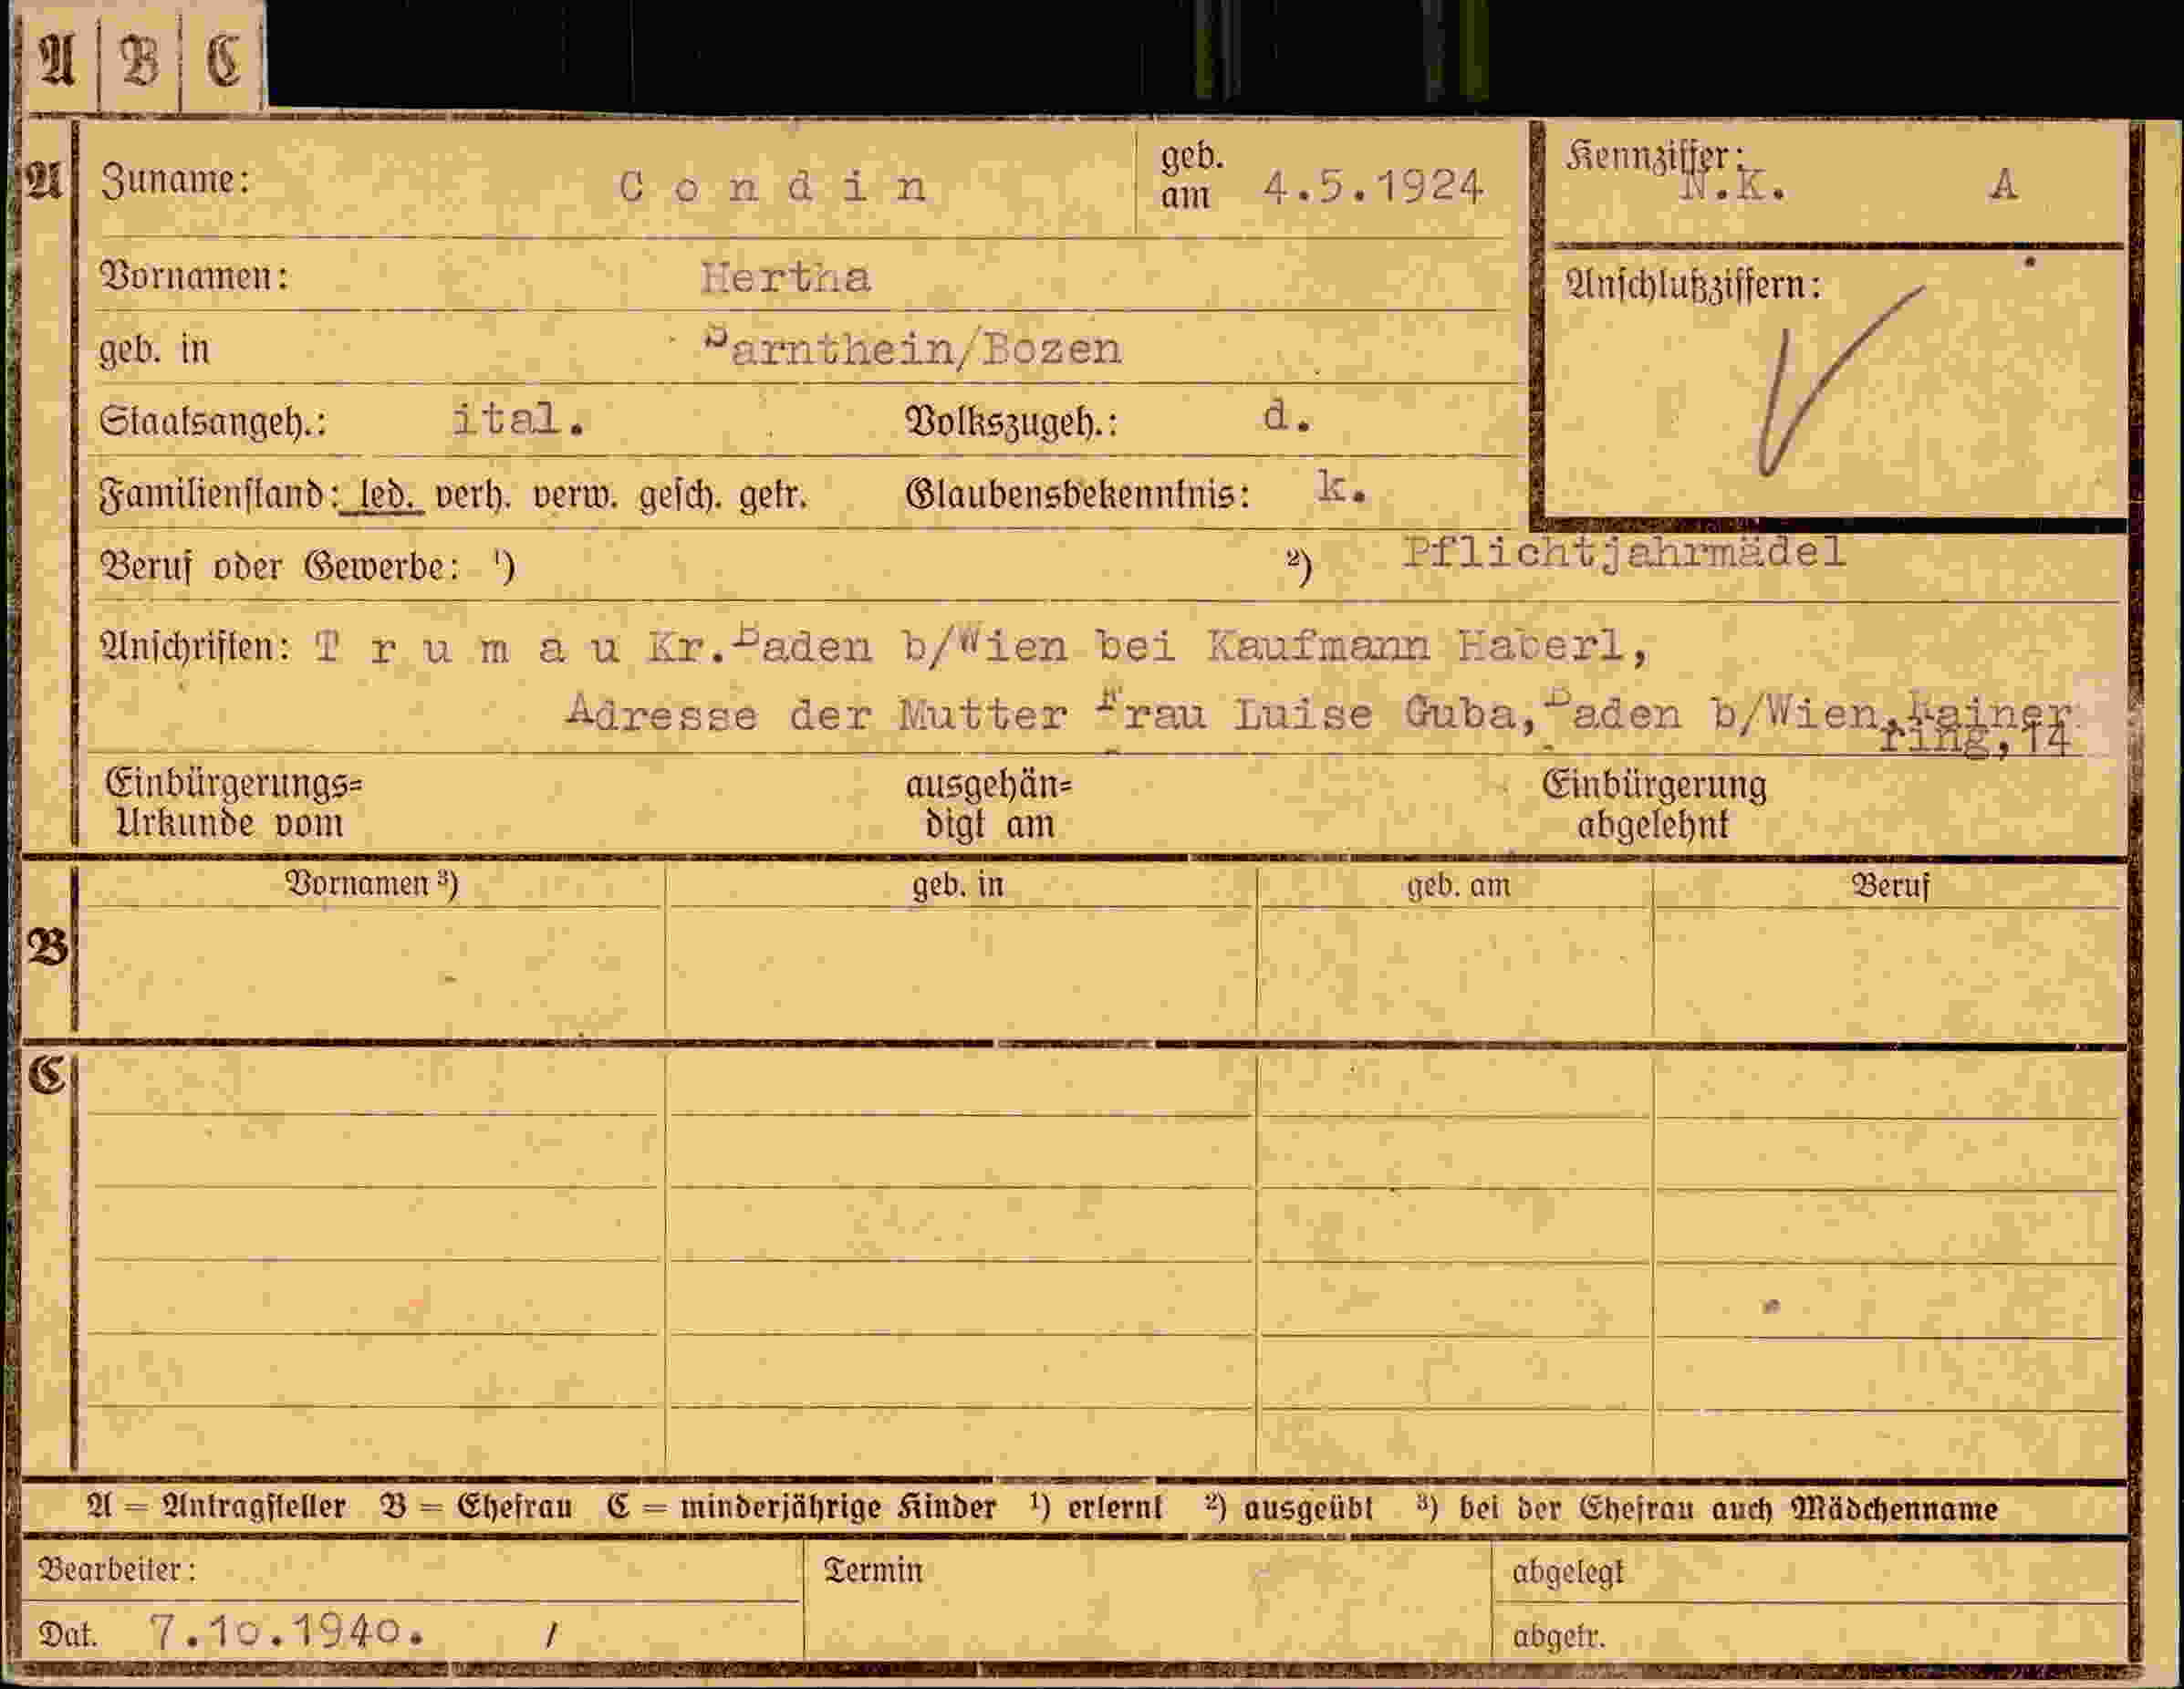 A B C
A Zuname: Condin geb. am 4.5.1924 Kennziffer: N.K. A
Vornamen: Hertha Anschlußziffern:
geb. in Sarnthein/Bozen
Staatsangeh.: ital. Volkszugeh.: d.
Familienstand: led. verh. verw. gesch. getr. Glaubensbekenntnis: k.
Beruf oder Gewerbe: ¹) ²) Pflichtjahrmädel
Anschriften: Trumau Kr.Baden b/Wien bei Kaufmann Haberl,
Adresse der Mutter Frau Luise Guba, Baden b/Wien, Rainer
ring, 14
Einbürgerungs= ausgehän= Einbürgerung
Urkunde vom digt am abgelehnt
Vornamen ³) geb. in geb. am Beruf
B
C
A = Antragsteller B = Ehefrau C = minderjährige Kinder ¹) erlernt ²) ausgeübt ³) bei der Ehefrau auch Mädchenname
Bearbeiter: Termin abgelegt
Dat. 7.10.1940. / abgetr.